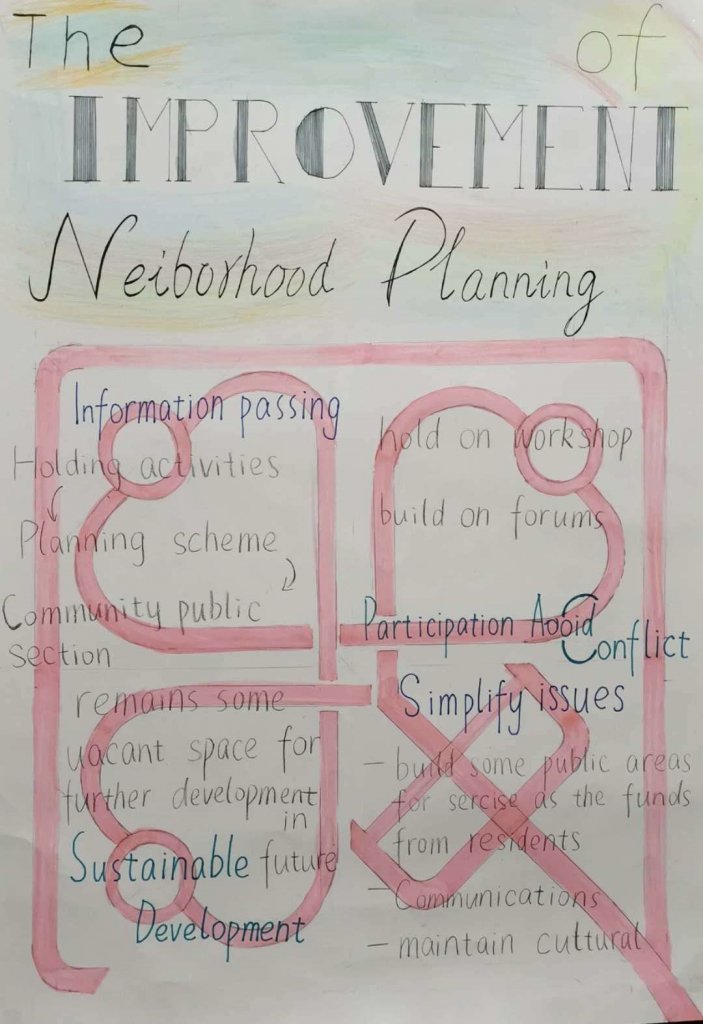 The of
IMPROVEMENT
Neiborhood Planning
Information passing
Holding activities
Planning scheme
Community public
section
hold on workshop
build on forums
Participation Aooid
Conflict
remains some
vacant space for
further development
in
future
Sustainable
Development
Simplify issues
- build some public areas
for sercise as the funds
from residents
- Communications
- maintain cultural